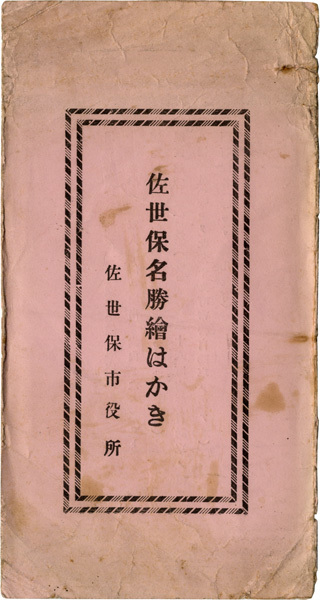 佐世保名勝繪はかき
佐世保市役所